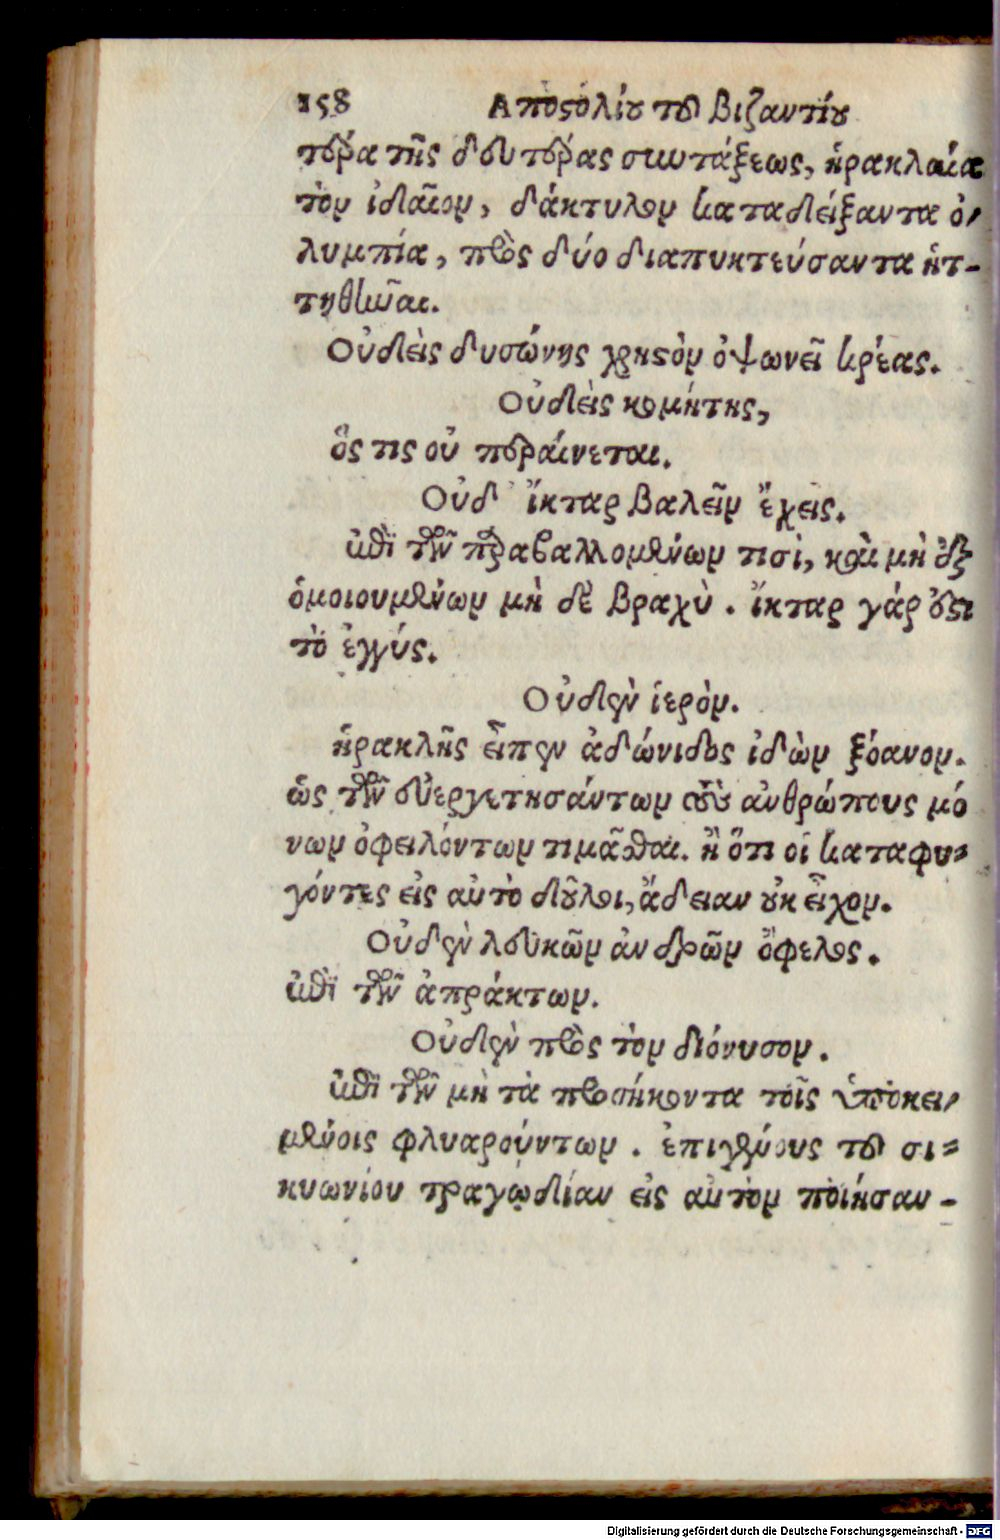 158 Αποστολίου τοῦ βιζαντίου
τέρα τῆς δευτέρας συντάξεως, ἡρακλέα
τὸν ἰδαῖον, δάκτυλον καταδείξαντα ὀ-
λυμπία, πρὸς δύο διαπυκτεύσαντα ἡτ-
τηθῆναι.
Οὐδεὶς δυσώνης χρηστὸν ὀψωνεῖ κρέας.
Οὐδεὶς κομήτης,
ὅς τις οὐ περαίνεται.
Οὐδ' ἴκταρ βαλεῖν ἔχεις.
ἐπὶ τῶν παραβαλλομένων τισὶ, καὶ μὴ ἐξ
ὁμοιουμένων μὴ δὲ βραχὺ. ἴκταρ γάρ ἐστι
τὸ ἐγγύς.
Οὐδὲν ἱερὸν.
ἡρακλῆς εἶπεν ἀδώνιδος ἰδὼν ξόανον.
ὡς τῶν εὐεργετησάντων τοὺς ἀνθρώπους μό
νων ὀφειλόντων τιμᾶσθαι. ἢ ὅτι οἱ καταφυ-
γόντες εἰς αὐτὸ δοῦλοι, ἄδειαν οὐκ εἶχον.
Οὐδὲν λευκῶν ἀνδρῶν ὄφελος.
ἐπὶ τῶν ἀπράκτων.
Οὐδὲν πρὸς τὸν διόνυσον.
ἐπὶ τῶν μὴ τὰ προσήκοντα τοῖς ὑποκει-
μένοις φλυαρούντων. ἐπιγένους τοῦ σι-
κυωνίου τραγῳδίαν εἰς αὐτὸν ποιήσαν-
Digitalisierung gefördert durch die Deutsche Forschungsgemeinschaft - DFG